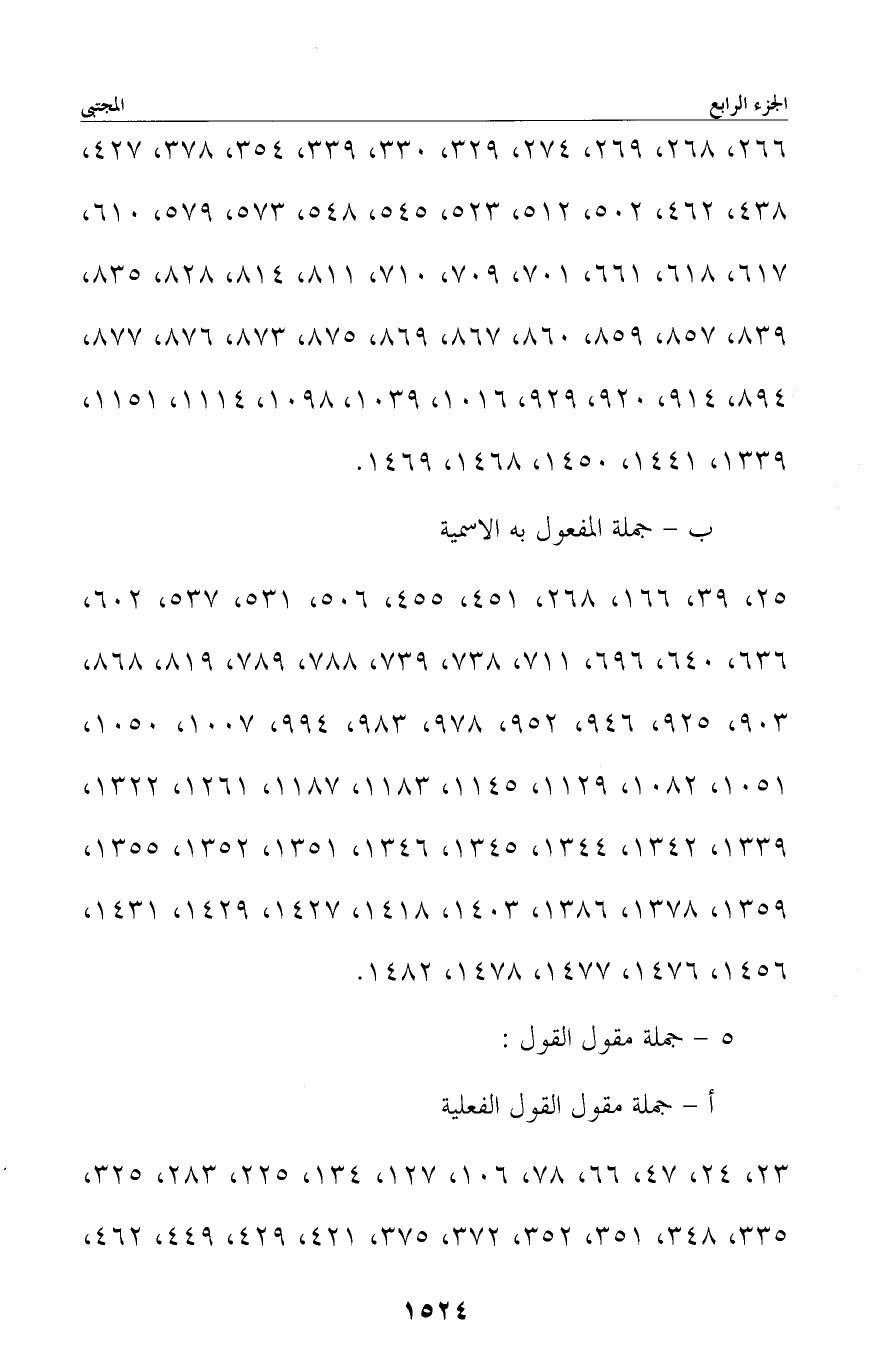 الجزء الرابع المجتبى
٢٦٦، ٢٦٨، ٢٦٩، ٢٧٤، ٣٢٩، ٣٣٠، ٣٣٩، ٣٥٤، ٣٧٨، ٤٢٧،
٤٣٨، ٤٦٢، ٥٠٢، ٥١٢، ٥٢٣، ٥٤٥، ٥٤٨، ٥٧٣، ٥٧٩، ٦١٠،
٦١٧، ٦١٨، ٦٦١، ٧٠١، ٧٠٩، ٧١٠، ٨١١، ٨١٤، ٨٢٨، ٨٣٥،
٨٣٩، ٨٥٧، ٨٥٩، ٨٦٠، ٨٦٧، ٨٦٩، ٨٧٥، ٨٧٣، ٨٧٦، ٨٧٧،
٨٩٤، ٩١٤، ٩٢٠، ٩٢٩، ١٠١٦، ١٠٣٩، ١٠٩٨، ١١١٤، ١١٥١،
١٣٣٩، ١٤٤١، ١٤٥٠، ١٤٦٨، ١٤٦٩.
ب – جملة المفعول به الاسمية
٢٥، ٣٩، ١٦٦، ٢٦٨، ٤٥١، ٤٥٥، ٥٠٦، ٥٣١، ٥٣٧، ٦٠٢،
٦٣٦، ٦٤٠، ٦٩٦، ٧١١، ٧٣٨، ٧٣٩، ٧٨٨، ٧٨٩، ٨١٩، ٨٦٨،
٩٠٣، ٩٢٥، ٩٤٦، ٩٥٢، ٩٧٨، ٩٨٣، ٩٩٤، ١٠٠٧، ١٠٥٠،
١٠٥١، ١٠٨٢، ١١٢٩، ١١٤٥، ١١٨٣، ١١٨٧، ١٢٦١، ١٣٢٢،
١٣٣٩، ١٣٤٢، ١٣٤٤، ١٣٤٥، ١٣٤٦، ١٣٥١، ١٣٥٢، ١٣٥٥،
١٣٥٩، ١٣٧٨، ١٣٨٦، ١٤٠٣، ١٤١٨، ١٤٢٧، ١٤٢٩، ١٤٣١،
١٤٥٦، ١٤٧٦، ١٤٧٧، ١٤٧٨، ١٤٨٢.
٥ – جملة مقول القول :
أ – جملة مقول القول الفعلية
٢٣، ٢٤، ٤٧، ٦٦، ٧٨، ١٠٦، ١٢٧، ١٣٤، ٢٢٥، ٢٨٣، ٣٢٥،
٣٣٥، ٣٤٨، ٣٥١، ٣٥٢، ٣٧٢، ٣٧٥، ٤٢١، ٤٢٩، ٤٤٩، ٤٦٢،
١٥٢٤